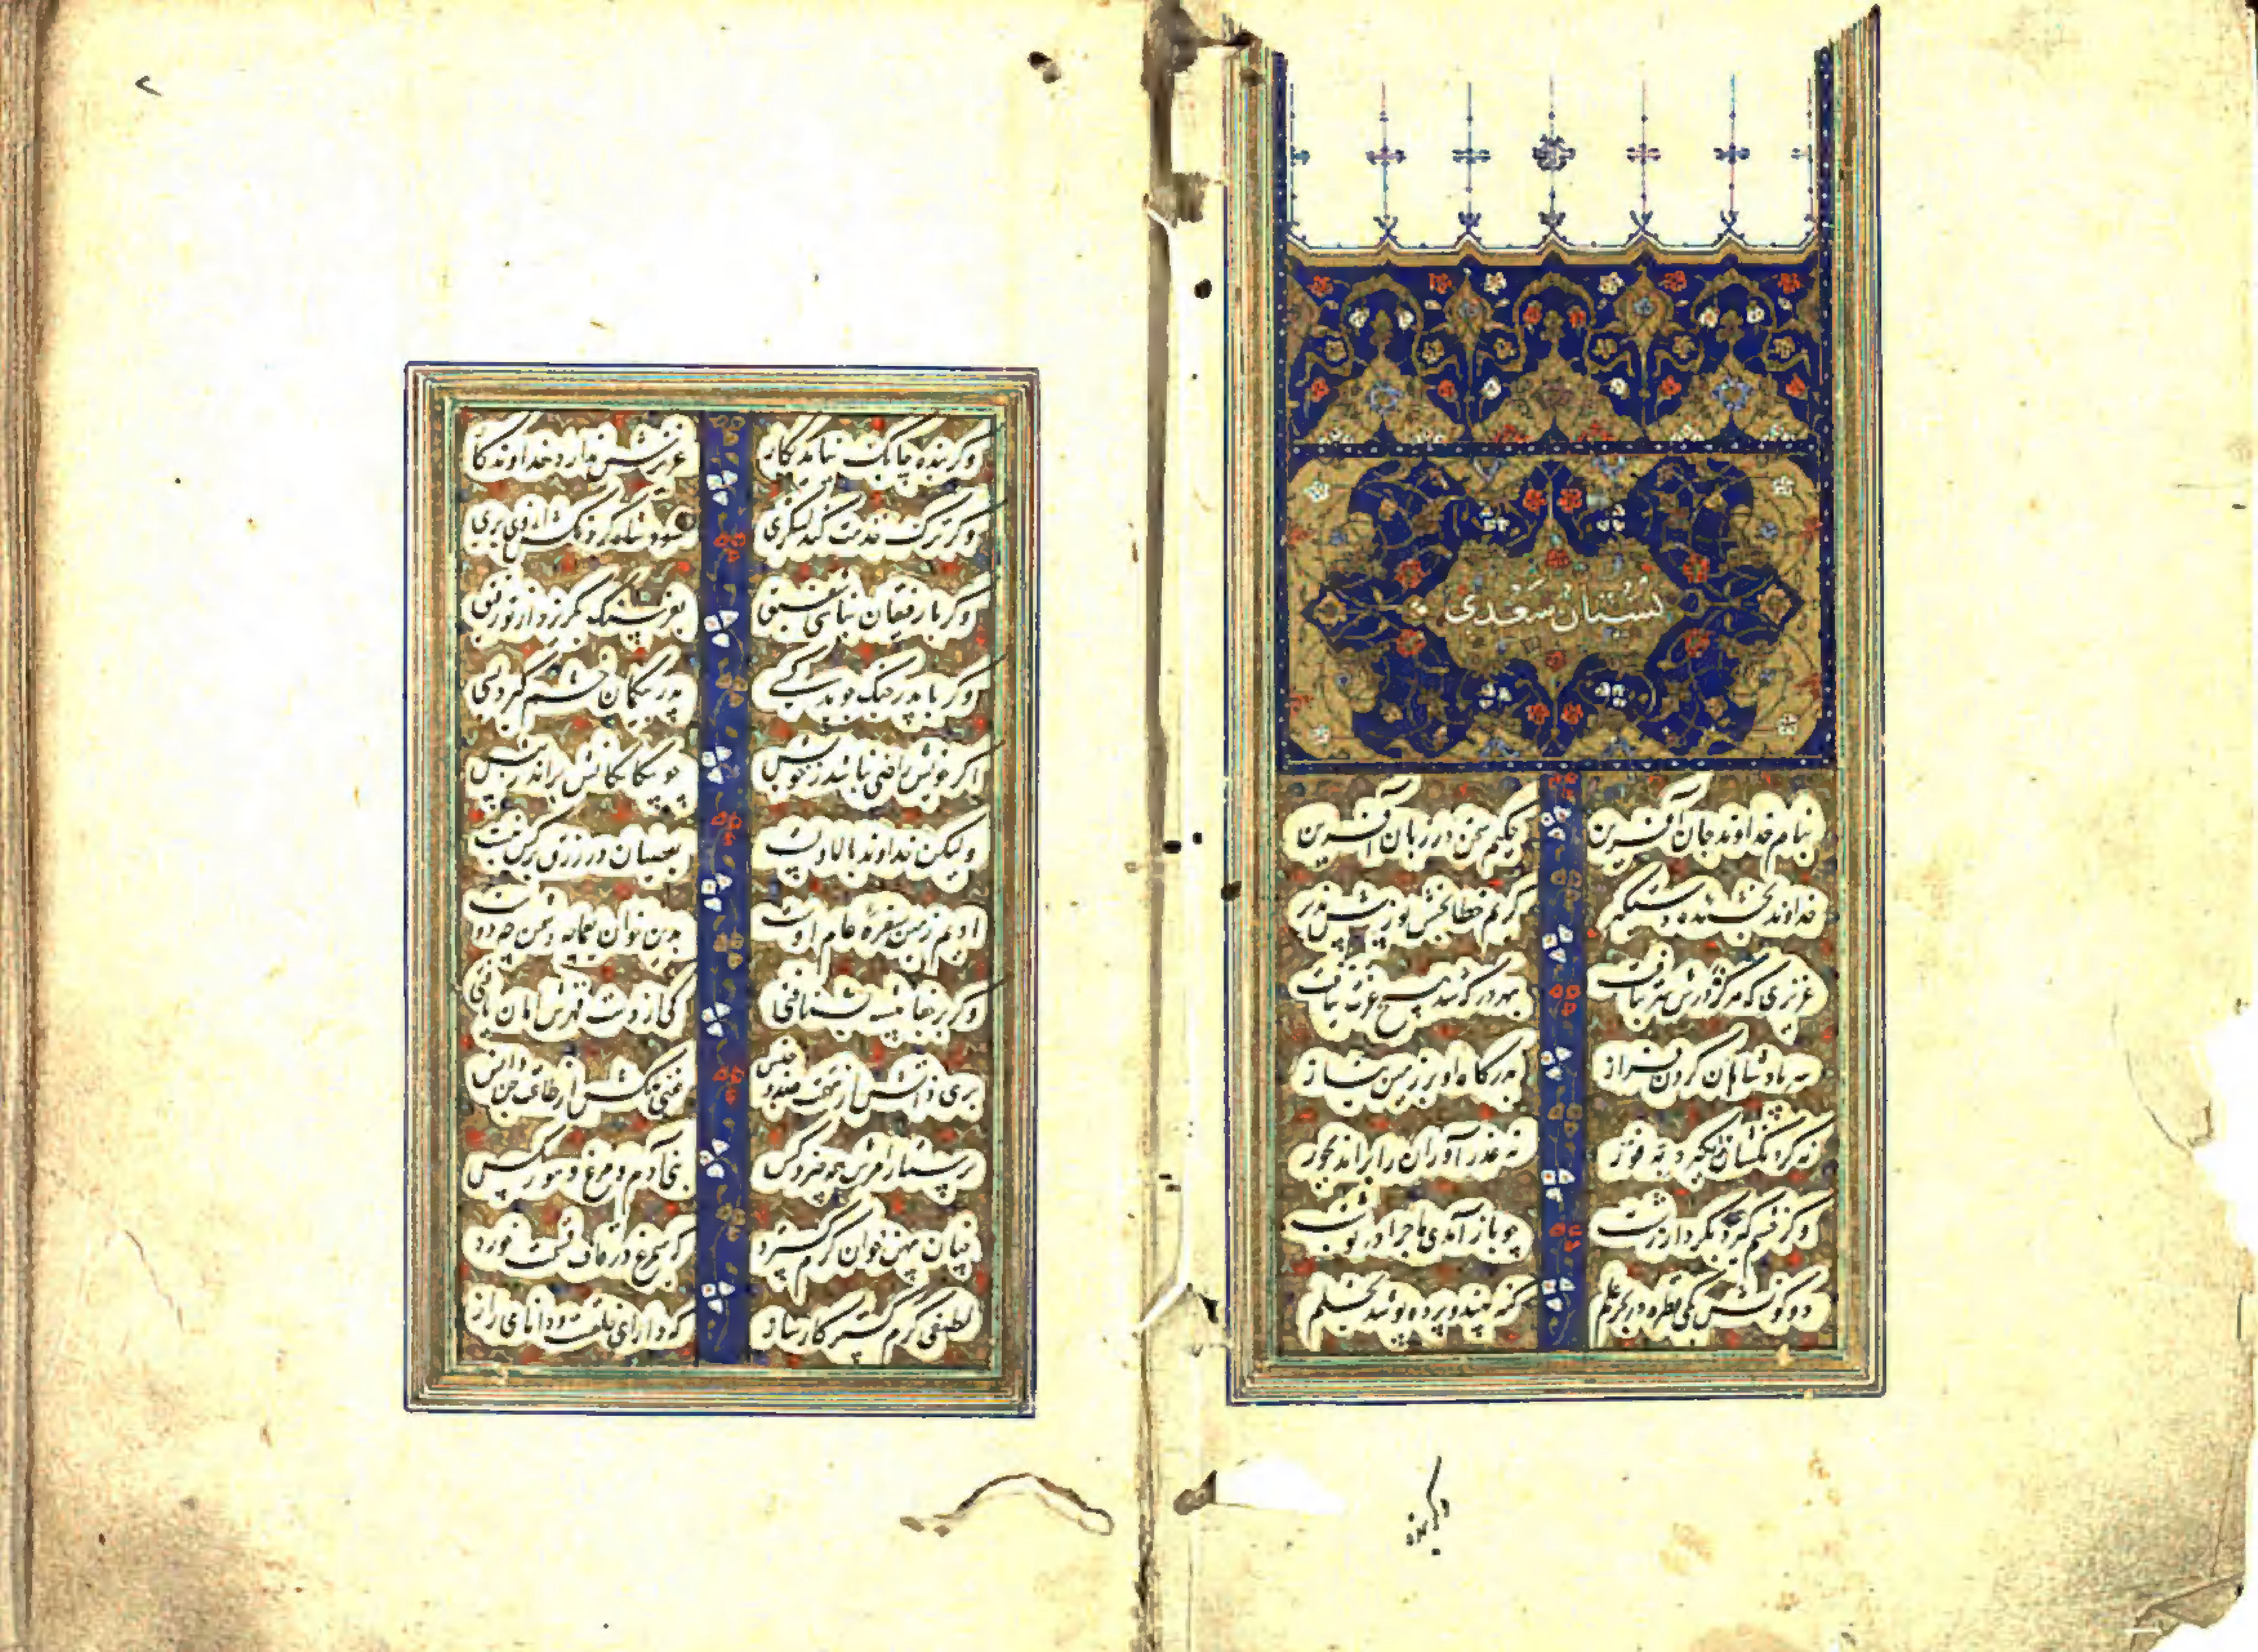 بستان سعدی
بنام خداوند جان آفرین حکیم سخن در زبان آفرین
خداوند بخشنده دستگیر کریم خطابخش پوزش پذیر
عزیزی که هرکز درش سر بتافت بهر در که شد هیچ عزت نیافت
سر پادشاهان کردن فراز بدرکاه او بر زمین نیاز
نه کردنکشان را بکیرد بفور نه عذرآوران را براند بجور
وکر خشم کیرد بکردار زشت چو بازآمدی ماجرا در نوشت
دو کونش یکی قطره در بحر علم کنه بیند و پرده پوشد بحلم
وکر بنده
وکر بنده چابک نیاید بکار عزیزش ندارد خداوندکار
وکر ترک خدمت کند لشکری شود شاه لشکرکش از وی بری
وکر با رفیقان نباشی شفیق بفرسنک بکریزد از تو رفیق
وکر با پدر جنک جوید کسی پدر بیکمان خشم کیرد بسی
اکر خویش راضی نباشد ز خویش چو بیکانکانش براند ز پیش
ولیکن خداوند بالا و پست بعصیان در رزق بر کس نبست
ادیم زمین سفرهٔ عام اوست برین خوان یغما چه دشمن چه دوست
وکر بر جفا پیشه بشتافتی کی از دست قهرش امان یافتی
بری ذاتش از تهمت ضد و جنس غنی ملکش از طاعت جن و انس
پرستار امرش همه چیز و کس بنی آدم و مرغ و مور و مکس
چنان پهن خوان کرم کسترد که سیمرغ در قاف قسمت خورد
لطیفی کرم کستر کارساز که دارای خلقت و دانای راز